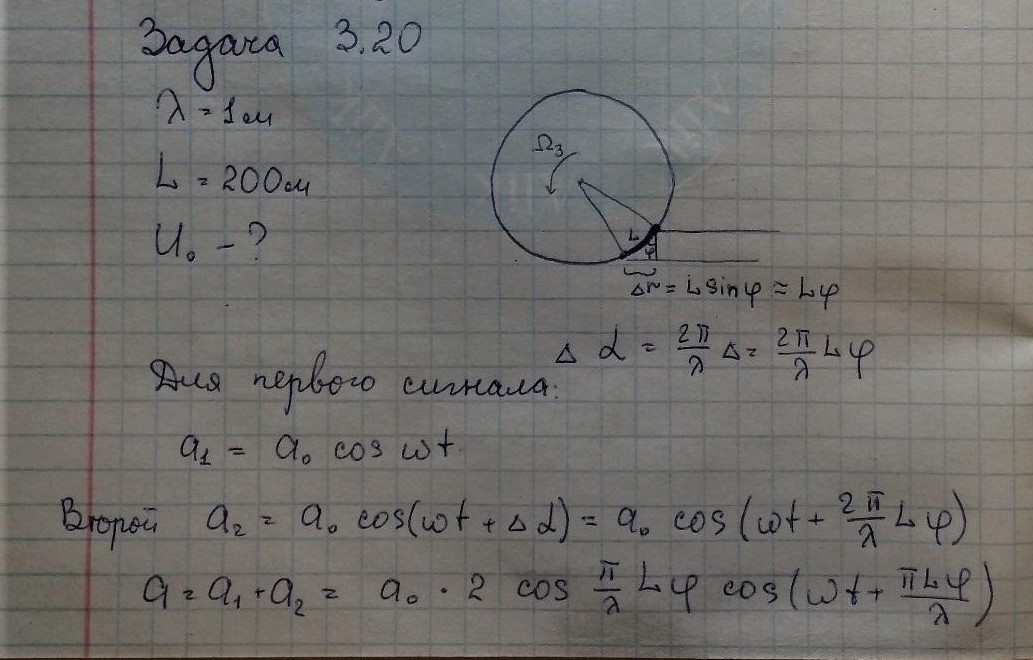 Задача 3.20
λ = 1м
L = 200м
U₀ - ?
Ω₃
L
φ
Δr = L sinφ ≈ Lφ
Δ α = 2π/λ Δ = 2π/λ Lφ
Для первого сигнала:
a₁ = a₀ cos ωt
Второй a₂ = a₀ cos(ωt + Δα) = a₀ cos (ωt + 2π/λ Lφ)
a = a₁ + a₂ = a₀ · 2 cos π/λ Lφ cos(ωt + πLφ/λ)